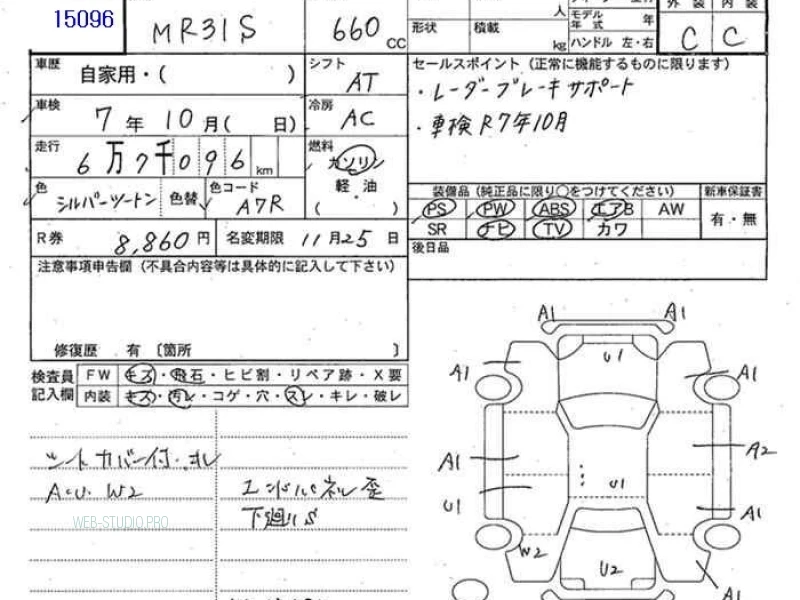 15096
MR31S
660 CC
形状 積載 人 kg
モデル年式 年
ハンドル 左・右
外装 内装
C C
車歴 自家用・( )
シフト AT
セールスポイント (正常に機能するものに限ります)
・レーダーブレーキサポート
車検 7年10月( 日)
冷房 AC
・車検R7年10月
走行 6万7千096km
燃料 ガソリン
軽・油
( )
色 シルバーツートン 色替 色コード A7R
装備品 (純正品に限り○をつけてください) 新車保証書
PS PW ABS エアB AW 有・無
SR ナビ TV カワ
R券 8,860円 名変期限 11月25日
後日品
注意事項申告欄 (不具合内容等は具体的に記入して下さい)
修復歴 有 〔箇所 〕
検査員記入欄
FW キズ・飛石・ヒビ割・リペア跡・X要
内装 キズ・汚レ・コゲ・穴・スレ・キレ・破レ
シートカバー付・ヨレ
A・U W2
エンドパネル歪
下廻りS
WEB-STUDIO PRO
A1 A1
U1
A1 A1
A1 A2
U1 U1
A1
W2 U2
A1